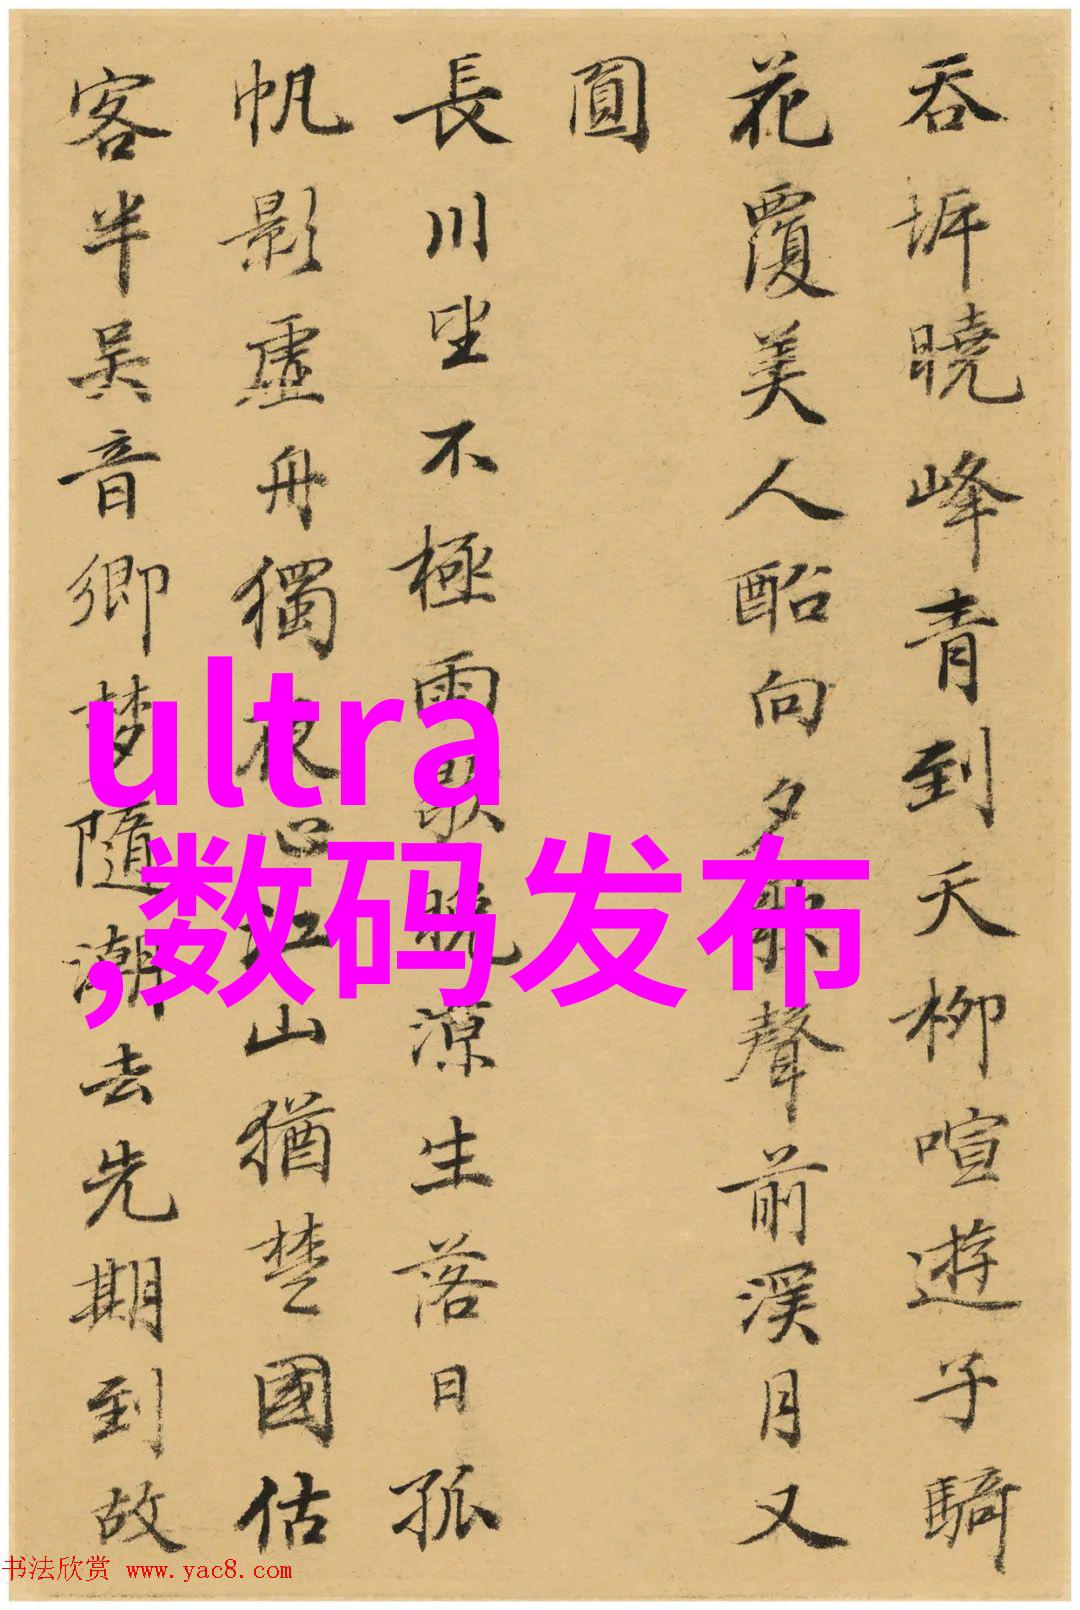 吞坼曉峰青到天柳喧遊子騎
花覆美人船向夕歌聲前溪月又
圓
長川坐不極雨歇晚涼生落日孤
帆影虛舟獨夜心江山猶楚國估
客半吳音鄉夢隨潮去先期到故
ultra
,数码发布
书法欣赏 www.yac8.com